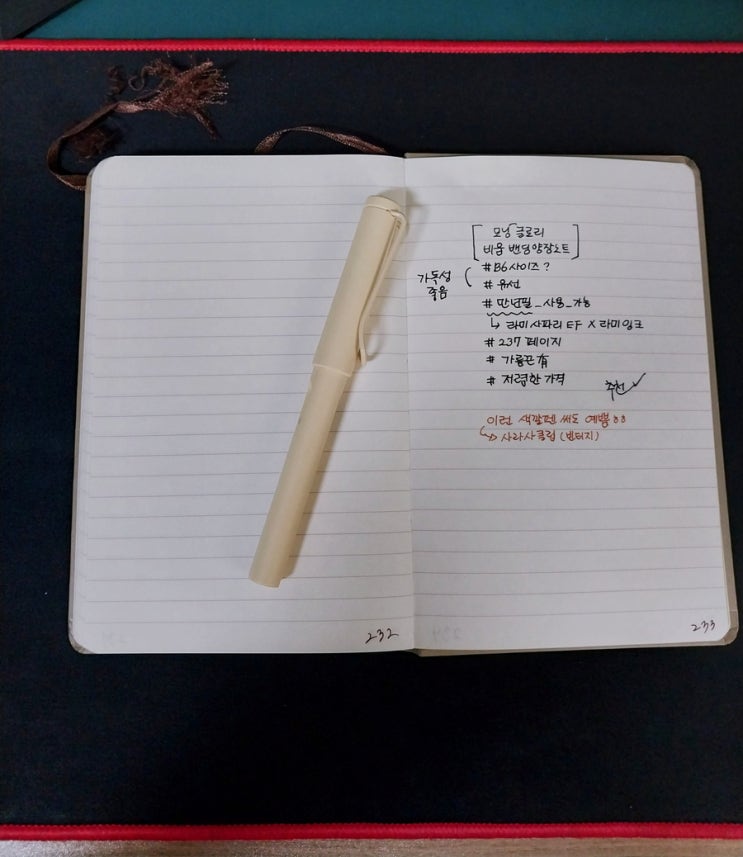 [모닝글로리
비움 밴딩양장노트]
#B6사이즈?
가독성
좋음
#유선
#만년필_사용_가능
↳ 라미사파리 EF X 라미잉크
#237페이지
#가름끈有
#저렴한 가격
추천✓
이런 색깔펜 써도 예쁨ㅎㅎ
↳ 사라사클립(빈티지)
232
233